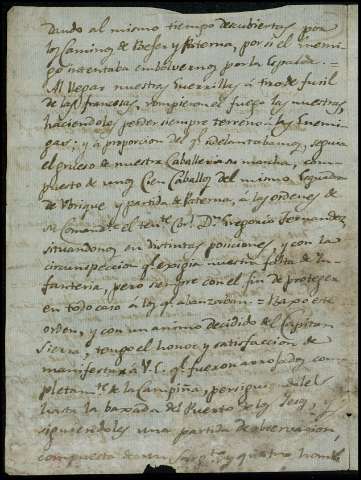 Dando al mismo tiempo descubiertas por
los caminos de y Paterna, por si el enemi-
go intentaba embolvernos por la Espalda. =
Al llegar nuestras Guerrillas á tiro de fusil
de las francesas, rompieron el fuego las nuestras,
haciendoles perder siempre terreno á las Enemi-
gas; y á proporcion del q.e adelantabamos, seguia
el grueso de nuestra Caballeria su marcha, com-
puesto de unos Cien Caballos del mismo Esquadron
de Ubrique y partida de Paterna, á las ordenes de
su Comand.te el ten.te Cor.l D.n Gregorio Fernandez
situandonos en distintas posiciones, y con la
circunspeccion q.e exigia nuestra falta de In-
fanteria, pero siempre con el fin de proteger
en todo caso á los q.e abanzaban. = Baxo este
orden, y con un animo decidido del Capitan
Sierra, tengo el honor y satisfaccion de
manifestar á V.E. q.e fueron arrojados com-
pletam.te de la Campiña, persiguiendoles
hasta la baxada del Puerto de y
siguiendoles una partida de observacion,
compuesta de un Sarg.to y quatro homb.s